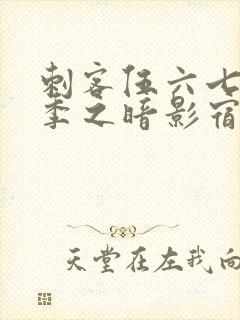 刺客伍六七
季之暗影宿
天堂在左我向